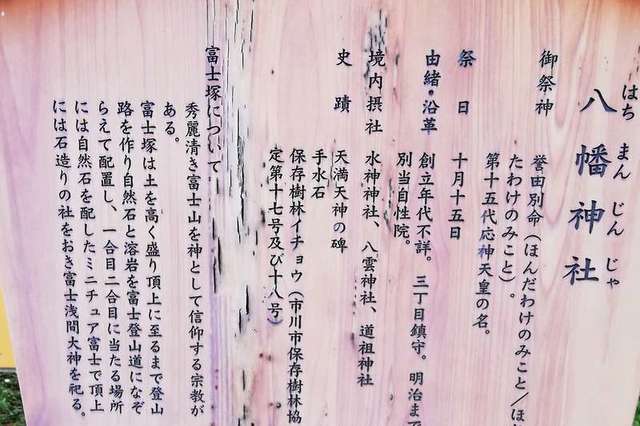 はちまんじんじゃ
八幡神社
御祭神　誉田別命（ほんだわけのみこと／ほ
たわけのみこと）。
第十五代応神天皇の名。
祭日　十月十五日
由緒・沿革　創立年代不詳。三丁目鎮守。明治まで
別当自性院。
境内摂社　水神神社、八雲神社、道祖神社
史蹟　天満天神の碑
手水石
保存樹林イチョウ（市川市保存樹林協
定第十七号及び十八号）
富士塚について
秀麗清き富士山を神として信仰する宗教が
ある。
富士塚は土を高く盛り頂上に至るまで登山
路を作り自然石と溶岩を富士登山道になぞ
らえて配置し、一合目二合目に当たる場所
には自然石を配したミニチュア富士で頂上
には石造りの社をおき富士浅間大神を祀る。